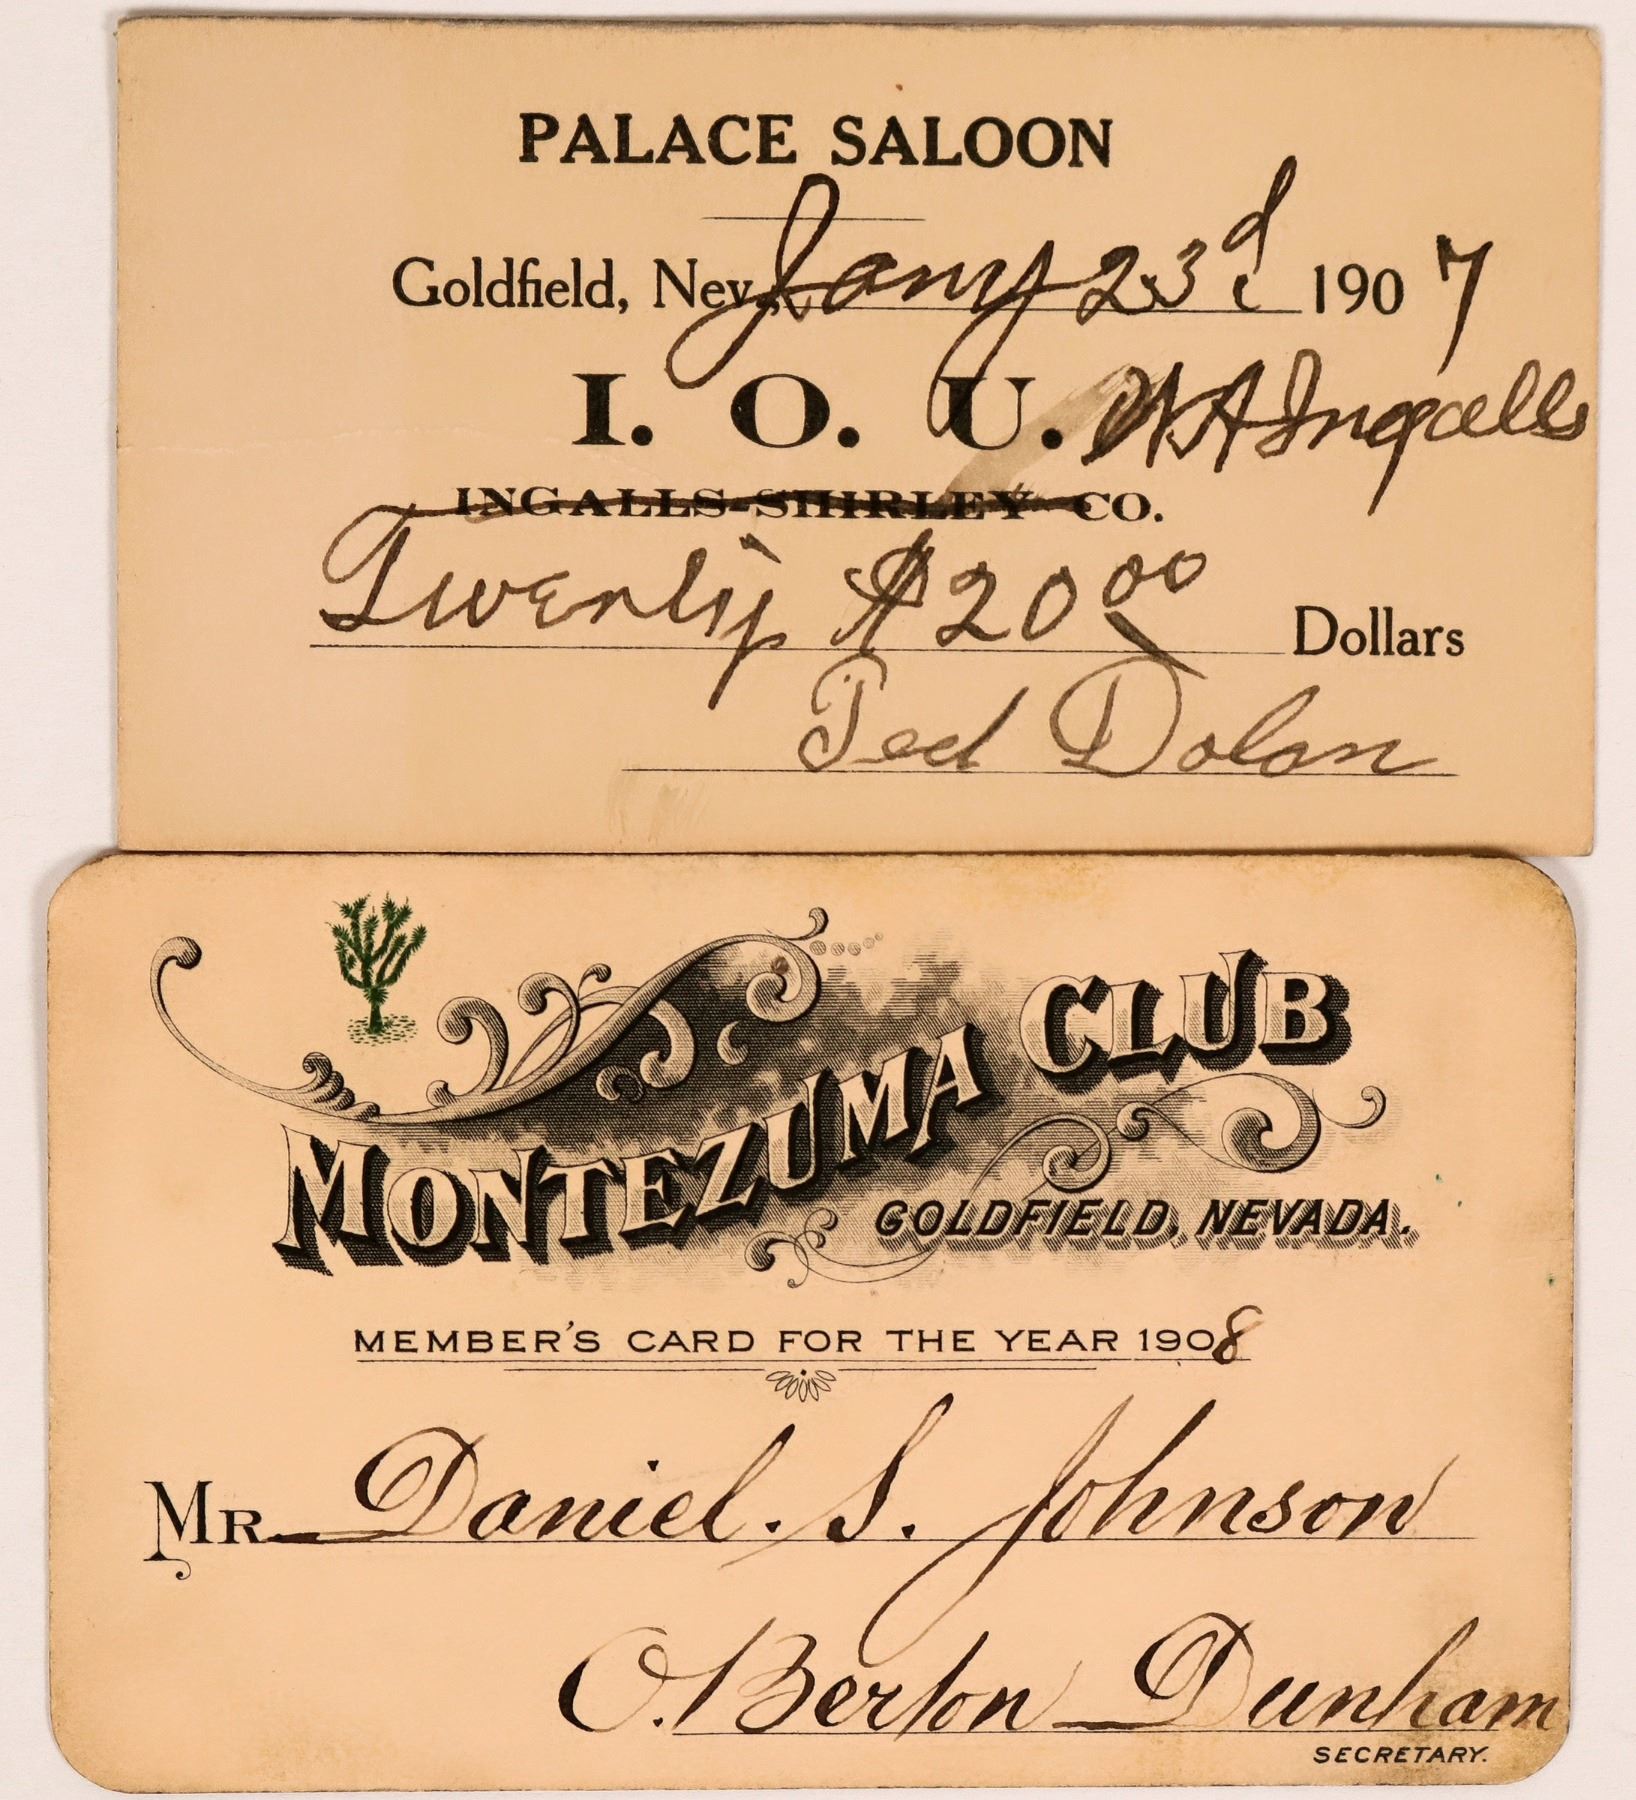 PALACE SALOON
Goldfield, Nev. Jany 23d 1907
I. O. U. W A Ingalls
INGALLS-SHIRLEY CO.
Twenty $20 00 Dollars
Ted Dolan
MONTEZUMA CLUB
GOLDFIELD, NEVADA.
MEMBER'S CARD FOR THE YEAR 1908
MR. Daniel. S. Johnson
O. Berton Dunham
SECRETARY.